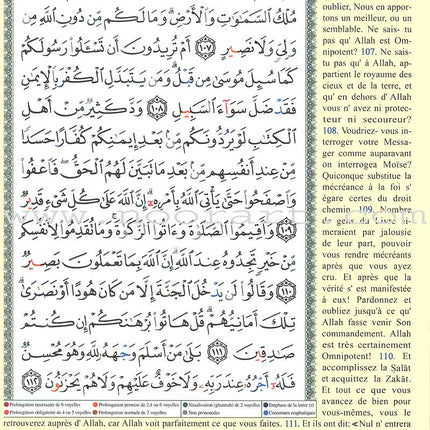 مُلْكُ ٱلسَّمَٰوَٰتِ وَٱلْأَرْضِ وَمَا لَكُم مِّن دُونِ ٱللَّهِ مِن
وَلِىٍّ وَلَا نَصِيرٍ ١٠٧ أَمْ تُرِيدُونَ أَن تَسْـَٔلُوا۟ رَسُولَكُمْ
كَمَا سُئِلَ مُوسَىٰ مِن قَبْلُ وَمَن يَتَبَدَّلِ ٱلْكُفْرَ بِٱلْإِيمَٰنِ
فَقَدْ ضَلَّ سَوَآءَ ٱلسَّبِيلِ ١٠٨ وَدَّ كَثِيرٌ مِّنْ أَهْلِ
ٱلْكِتَٰبِ لَوْ يَرُدُّونَكُم مِّنۢ بَعْدِ إِيمَٰنِكُمْ كُفَّارًا حَسَدًا
مِّنْ عِندِ أَنفُسِهِم مِّنۢ بَعْدِ مَا تَبَيَّنَ لَهُمُ ٱلْحَقُّ فَٱعْفُوا۟
وَٱصْفَحُوا۟ حَتَّىٰ يَأْتِىَ ٱللَّهُ بِأَمْرِهِۦٓ إِنَّ ٱللَّهَ عَلَىٰ كُلِّ شَىْءٍ قَدِيرٌ
١٠٩ وَأَقِيمُوا۟ ٱلصَّلَوٰةَ وَءَاتُوا۟ ٱلزَّكَوٰةَ وَمَا تُقَدِّمُوا۟ لِأَنفُسِكُم
مِّنْ خَيْرٍ تَجِدُوهُ عِندَ ٱللَّهِ إِنَّ ٱللَّهَ بِمَا تَعْمَلُونَ بَصِيرٌ
١١٠ وَقَالُوا۟ لَن يَدْخُلَ ٱلْجَنَّةَ إِلَّا مَن كَانَ هُودًا أَوْ نَصَٰرَىٰ
تِلْكَ أَمَانِيُّهُمْ قُلْ هَاتُوا۟ بُرْهَٰنَكُمْ إِن كُنتُمْ
صَٰدِقِينَ ١١١ بَلَىٰ مَنْ أَسْلَمَ وَجْهَهُۥ لِلَّهِ وَهُوَ مُحْسِنٌ
فَلَهُۥٓ أَجْرُهُۥ عِندَ رَبِّهِۦ وَلَا خَوْفٌ عَلَيْهِمْ وَلَا هُمْ يَحْزَنُونَ ١١٢
oublier, Nous en appor-
tons un meilleur, ou un
semblable. Ne sais- tu
pas qu' Allah est Om-
nipotent? 107. Ne sais-
tu pas qu' à Allah, ap-
partient le royaume des
cieux et de la terre, et
qu' en dehors d' Allah
vous n' avez ni protec-
teur ni secoureur?
108. Voudriez- vous in-
terroger votre Messa-
ger comme auparavant
on interrogea Moïse?
Quiconque substitue la
mécréance à la foi s'
égare certes du droit
chemin. 109. Nombre
de gens du Livre ai-
meraient par jalousie
de leur part, pouvoir
vous rendre mécréants
après que vous ayez
cru. Et après que la
vérité s' est manifestée
à eux! Pardonnez et
oubliez jusqu'à ce qu'
Allah fasse venir Son
commandement. Allah
est très certainement
Omnipotent! 110. Et
accomplissez la Ṣalāt
et acquittez la Zakāt.
Et tout ce que vous
avancez de bien pour
vous-mêmes, vous le
Prolongation nécessaire de 6 voyelles Prolongation permise de 2,4 ou 6 voyelles Nasalisation (ghunnah) de 2 voyelles Emphase de la lettre (r)
Prolongation obligatoire de 4 ou 5 voyelles Prolongation normale de 2 voyelles Non prononcées Consonnes emphatiques
retrouverez auprès d' Allah, car Allah voit parfaitement ce que vous faites. 111. Et ils ont dit: «Nul n' entrera